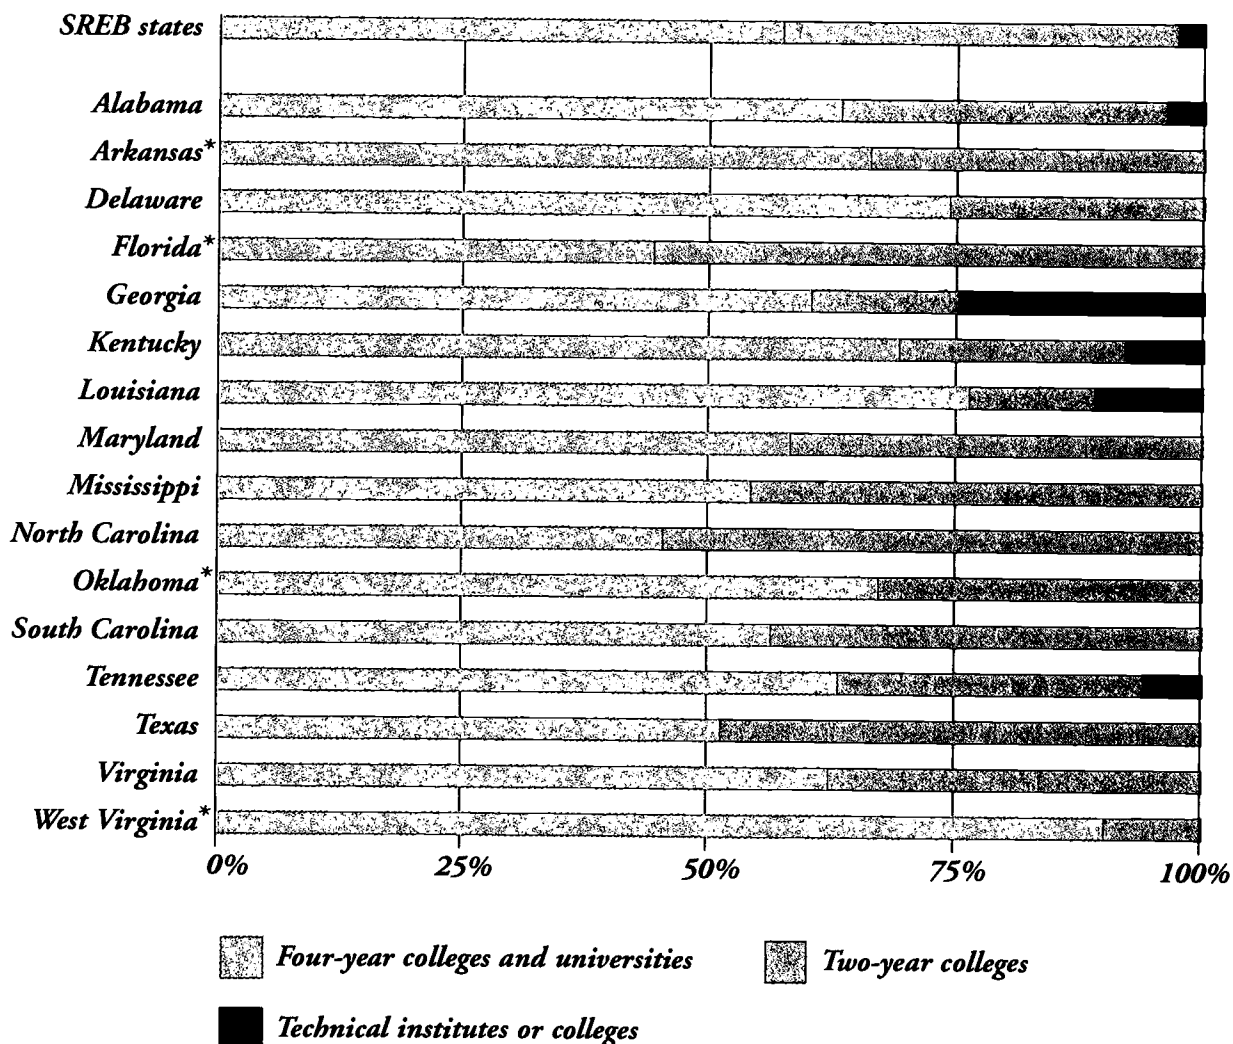 SREB states
Alabama
Arkansas*
Delaware
Florida*
Georgia
Kentucky
Louisiana
Maryland
Mississippi
North Carolina
Oklahoma*
South Carolina
Tennessee
Texas
Virginia
West Virginia*
0% 25% 50% 75% 100%
Four-year colleges and universities Two-year colleges
Technical institutes or colleges